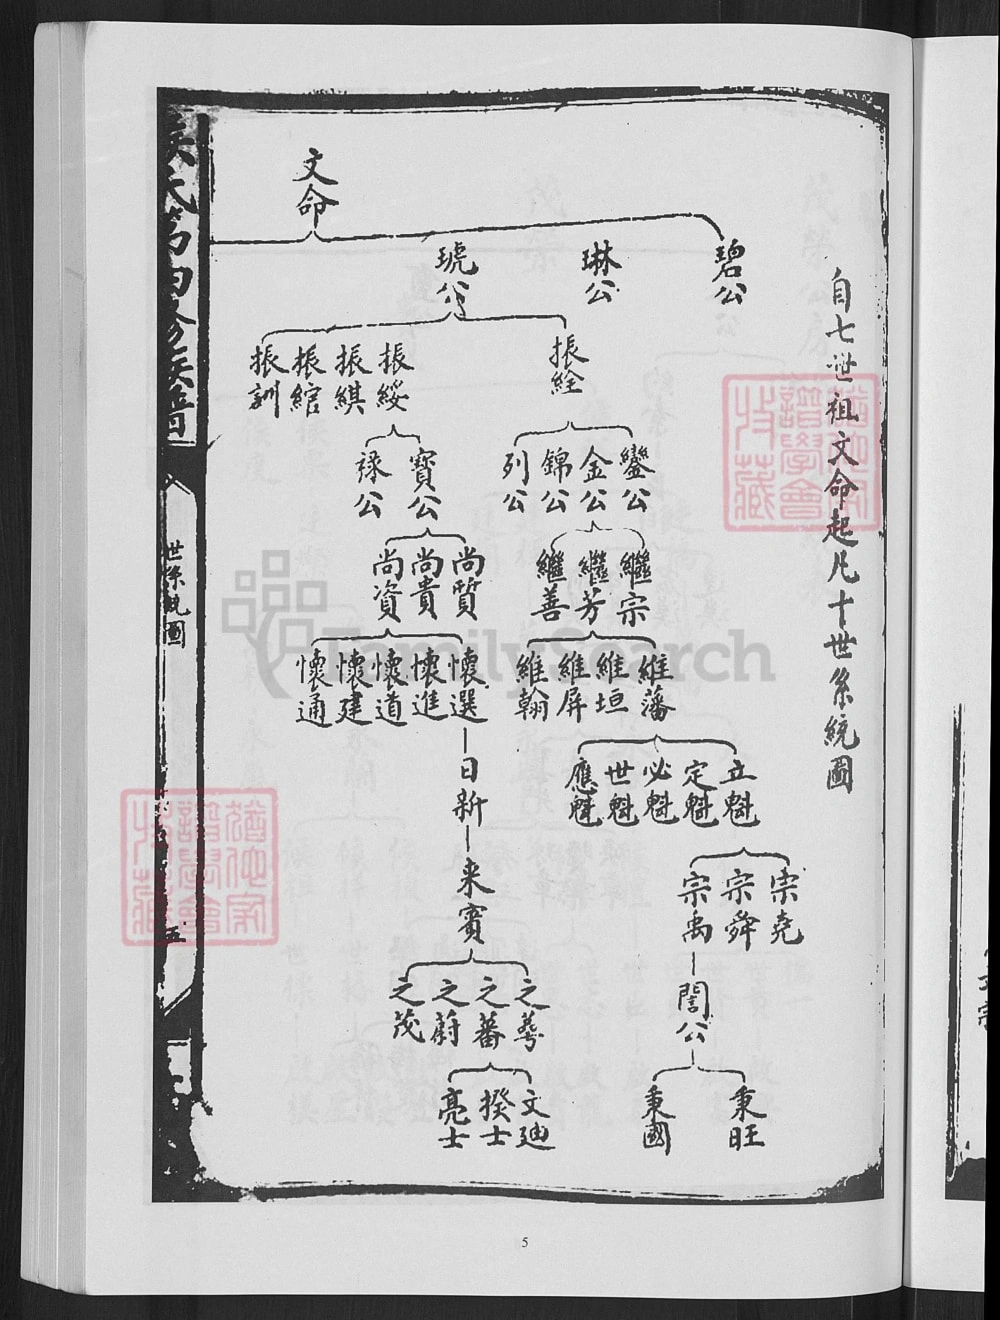 自七世祖文命起凡十世系統圖
文命
碧公
琳公
琥公
振絟
振綏
振綨
振綰
振訓
鑾公
金公
錦公
列公
寶公
祿公
繼宗
繼芳
繼善
尚質
尚貴
尚資
維藩
維垣
維屏
維翰
懷選
懷進
懷道
懷建
懷通
立魁
定魁
必魁
世魁
應魁
日新
宗堯
宗舜
宗禹
来賓
誾公
之蕚
之蕃
之蔚
之茂
秉旺
秉國
文廸
揆士
亮士
族譜
世系統圖
五
FamilySearch
猶他家譜學會收藏
猶他家譜學會收藏
5